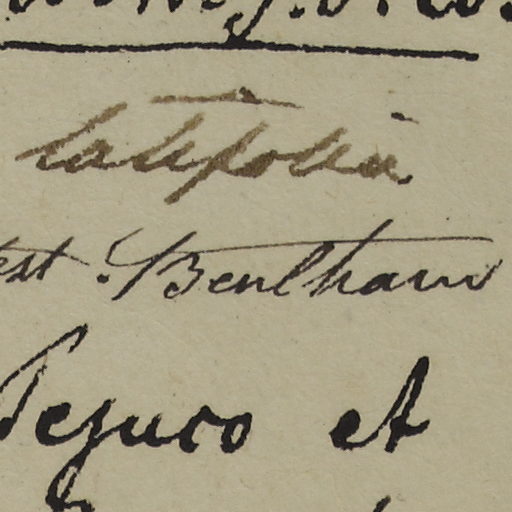 latifolia
est. Bentham
Tejuco et